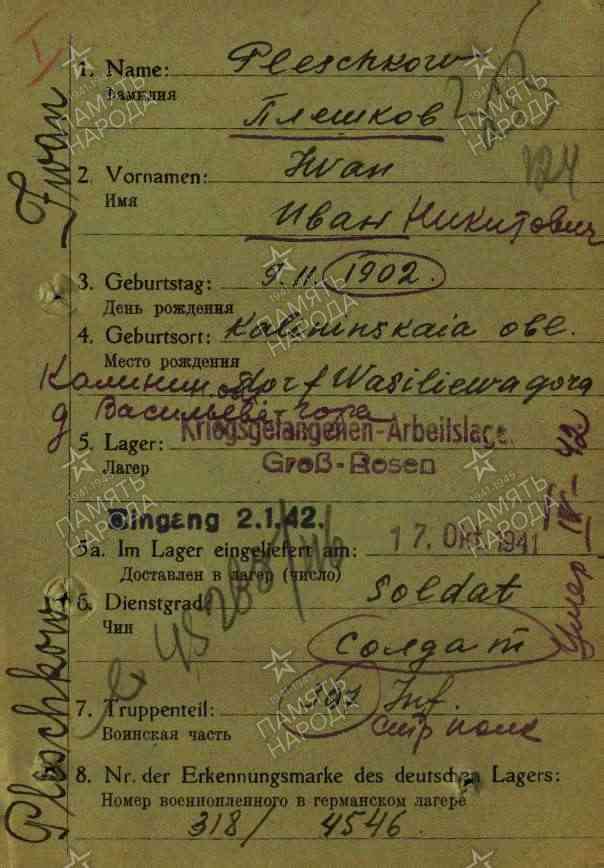 1. Name: Pleschkow
Фамилия
Плешков
124
Iwan
2. Vornamen: Iwan
Имя
Иван Никитович
3. Geburtstag: 9.11.1902.
День рождения
4. Geburtsort: Kalininskaia obl.
Место рождения
Калинин. обл dorf Wasiliewa gora
д Васильева-гора
Kriegsgefangenen-Arbeitslager
5. Lager:
Groß-Rosen
Лагер
Eingang 2.1.42.
5a. Im Lager eingeliefert am: 17. Okt. 1941
Доставлен в лагер (число)
умер IV-42
6. Dienstgrad: Soldat
Чин
солдат
7. Truppenteil: Inf.
Воинская часть
стр полк
Pleschkow
8. Nr. der Erkennungsmarke des deutschen Lagers:
Номер военнопленного в германском лагере
318/ 4546.
ПАМЯТЬ НАРОДА
1941-1945